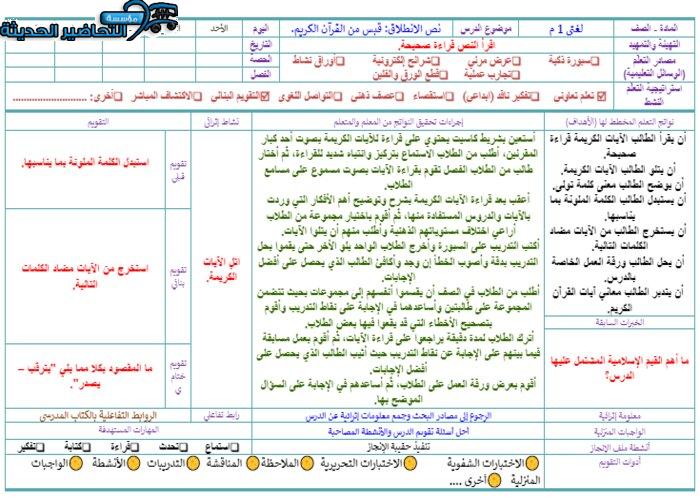 مؤسسة
التحاضير الحديثة
المادة - الصف
لغتي 1 م
موضوع الدرس
نص الانطلاق: قبس من القرآن الكريم.
اليوم
الأحد
التهيئة والتمهيد
اقرأ النص قراءة صحيحة.
التاريخ
مصادر التعلم
(الوسائل التعليمية)
سبورة ذكية
عرض مرئي
شرائح إلكترونية
أوراق نشاط
تجارب عملية
قطع الورق والفلين
الحصة
الفصل
استراتيجية التعلم
النشط
تعلم تعاوني
تفكير ناقد (ابداعى)
استقصاء
عصف ذهنى
التواصل اللغوى
التقويم البنائي
الاكتشاف المباشر
أخرى: ..........................
نواتج التعلم المخطط لها (الأهداف)
إجراءات تحقيق النواتج من المعلم والمتعلم
نشاط إثرائي
التقويم
أن يقرأ الطالب الآيات الكريمة قراءة
صحيحة.
أن يتلو الطالب الآيات الكريمة.
أن يوضح الطالب معنى كلمة تولى.
أن يستبدل الطالب الكلمة الملونة بما
يناسبها.
أن يستخرج الطالب من الآيات مضاد
الكلمات التالية.
أن يحل الطالب ورقة العمل الخاصة
بالدرس.
أن يتدبر الطالب معاني آيات القرآن
الكريم.
الخبرات السابقة
ما أهم القيم الإسلامية المشتمل عليها
الدرس؟
أستعين بشريط كاسيت يحتوي على قراءة للآيات الكريمة بصوت أحد كبار
المقرئين، أطلب من الطلاب الاستماع بتركيز وانتباه شديد للقراءة، ثم أختار
طالب من الطلاب الفصل تقوم بقراءة الآيات بصوت مسموع على مسامع
الطلاب.
أعقب بعد قراءة الآيات الكريمة بشرح وتوضيح أهم الأفكار التي وردت
بالآيات والدروس المستفادة منها، ثم أقوم باختيار مجموعة من الطلاب
أراعي اختلاف مستوياتهم الذهنية وأطلب منهم أن يتلوا الآيات.
أكتب التدريب على السبورة وأخرج الطلاب الواحد يلو الآخر حتى يقموا بحل
التدريب بدقة وأصوب الخطأ إن وجد وأكافئ الطالب الذي يحصل على أفضل
الإجابات.
أطلب من الطلاب في الصف أن يقسموا أنفسهم إلى مجموعات بحيث تتضمن
المجموعة على طالبتين وأساعدهما في الإجابة على نقاط التدريب وأقوم
بتصحيح الأخطاء التي قد يقعوا فيها بعض الطلاب.
أترك الطلاب لمدة دقيقة يراجعوا على قراءة الآيات، ثم أقوم بعمل مسابقة
فيما بينهم على الإجابة عن نقاط التدريب حيث أثيب الطالب الذي يحصل على
أفضل الإجابات.
أقوم بعرض ورقة العمل على الطلاب، ثم أساعدهم في الإجابة على السؤال
الموضح بها.
اتل الآيات
الكريمة.
تقويم
قبلي
استبدل الكلمة الملونة بما يناسبها.
تقويم
بنائي
استخرج من الآيات مضاد الكلمات
التالية.
تقويم
ختام
ي
ما المقصود بكلا مما يلي "يترقب –
يصدر".
معلومة إثرائية
الرجوع إلى مصادر البحث وجمع معلومات إثرائية عن الدرس
رابط تفاعلي
الروابط التفاعلية بالكتاب المدرسي
الواجبات المنزلية
أحل أسئلة تقويم الدرس والأنشطة المصاحبة
المهارات المستهدفة
أنشطة ملف الإنجاز
تنفيذ حقيبة الإنجاز
استماع
تحدث
قراءة
كتابة
تفكير
أدوات التقويم
الاختبارات الشفوية
الاختبارات التحريرية
الملاحظة
المناقشة
التدريبات
الأنشطة
الواجبات
المنزلية
أخرى ....